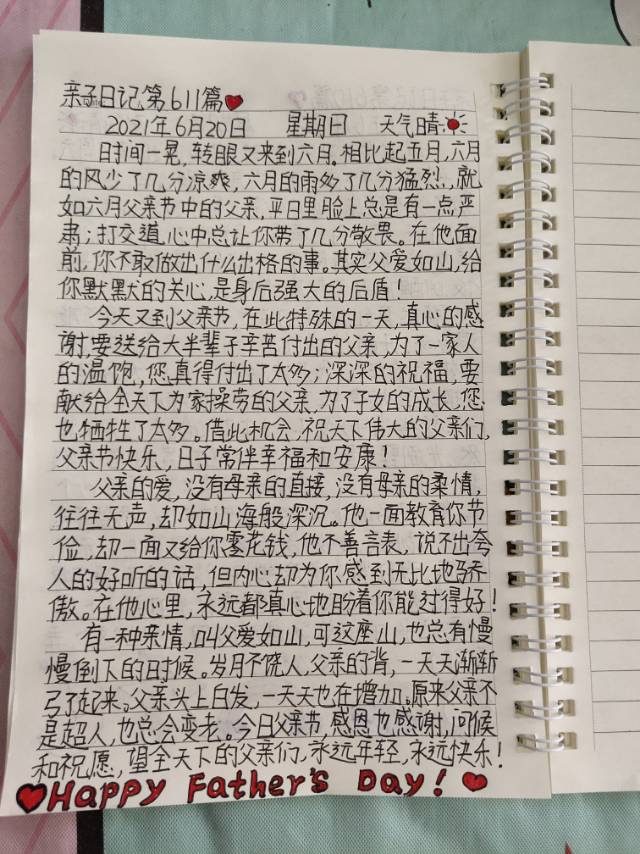 亲子日记第611篇
2021年6月20日 星期日 天气晴
时间一晃,转眼又来到六月。相比起五月,六月
的风少了几分凉爽,六月的雨多了几分猛烈.,就
如六月父亲节中的父亲,平日里脸上总是有一点严
肃;打交道,心中总让你带了几分敬畏。在他面
前,你不敢做出什么出格的事。其实父爱如山,给
你默默的关心,是身后强大的后盾!
今天又到父亲节,在此特殊的一天,真心的感
谢,要送给大半辈子辛苦付出的父亲,为了一家人
的温饱,您真得付出了太多;深深的祝福,要
献给全天下为家操劳的父亲,为了子女的成长,您
也牺牲了太多。借此机会,祝天下伟大的父亲们,
父亲节快乐,日子常伴幸福和安康!
父亲的爱,没有母亲的直接,没有母亲的柔情,
往往无声,却如山海般深沉。他一面教育你节
俭,却一面又给你零花钱,他不善言表,说不出夸
人的好听的话,但内心却为你感到无比地骄
傲。在他心里,永远都真心地盼着你能过得好!
有一种亲情,叫父爱如山,可这座山,也总有慢
慢倒下的时候。岁月不饶人,父亲的背,一天天渐渐
弓了起来。父亲头上白发,一天天也在增加。原来父亲不
是超人,也总会变老。今日父亲节,感恩也感谢,问候
和祝愿,望全天下的父亲们,永远年轻,永远快乐!
Happy Father's Day!